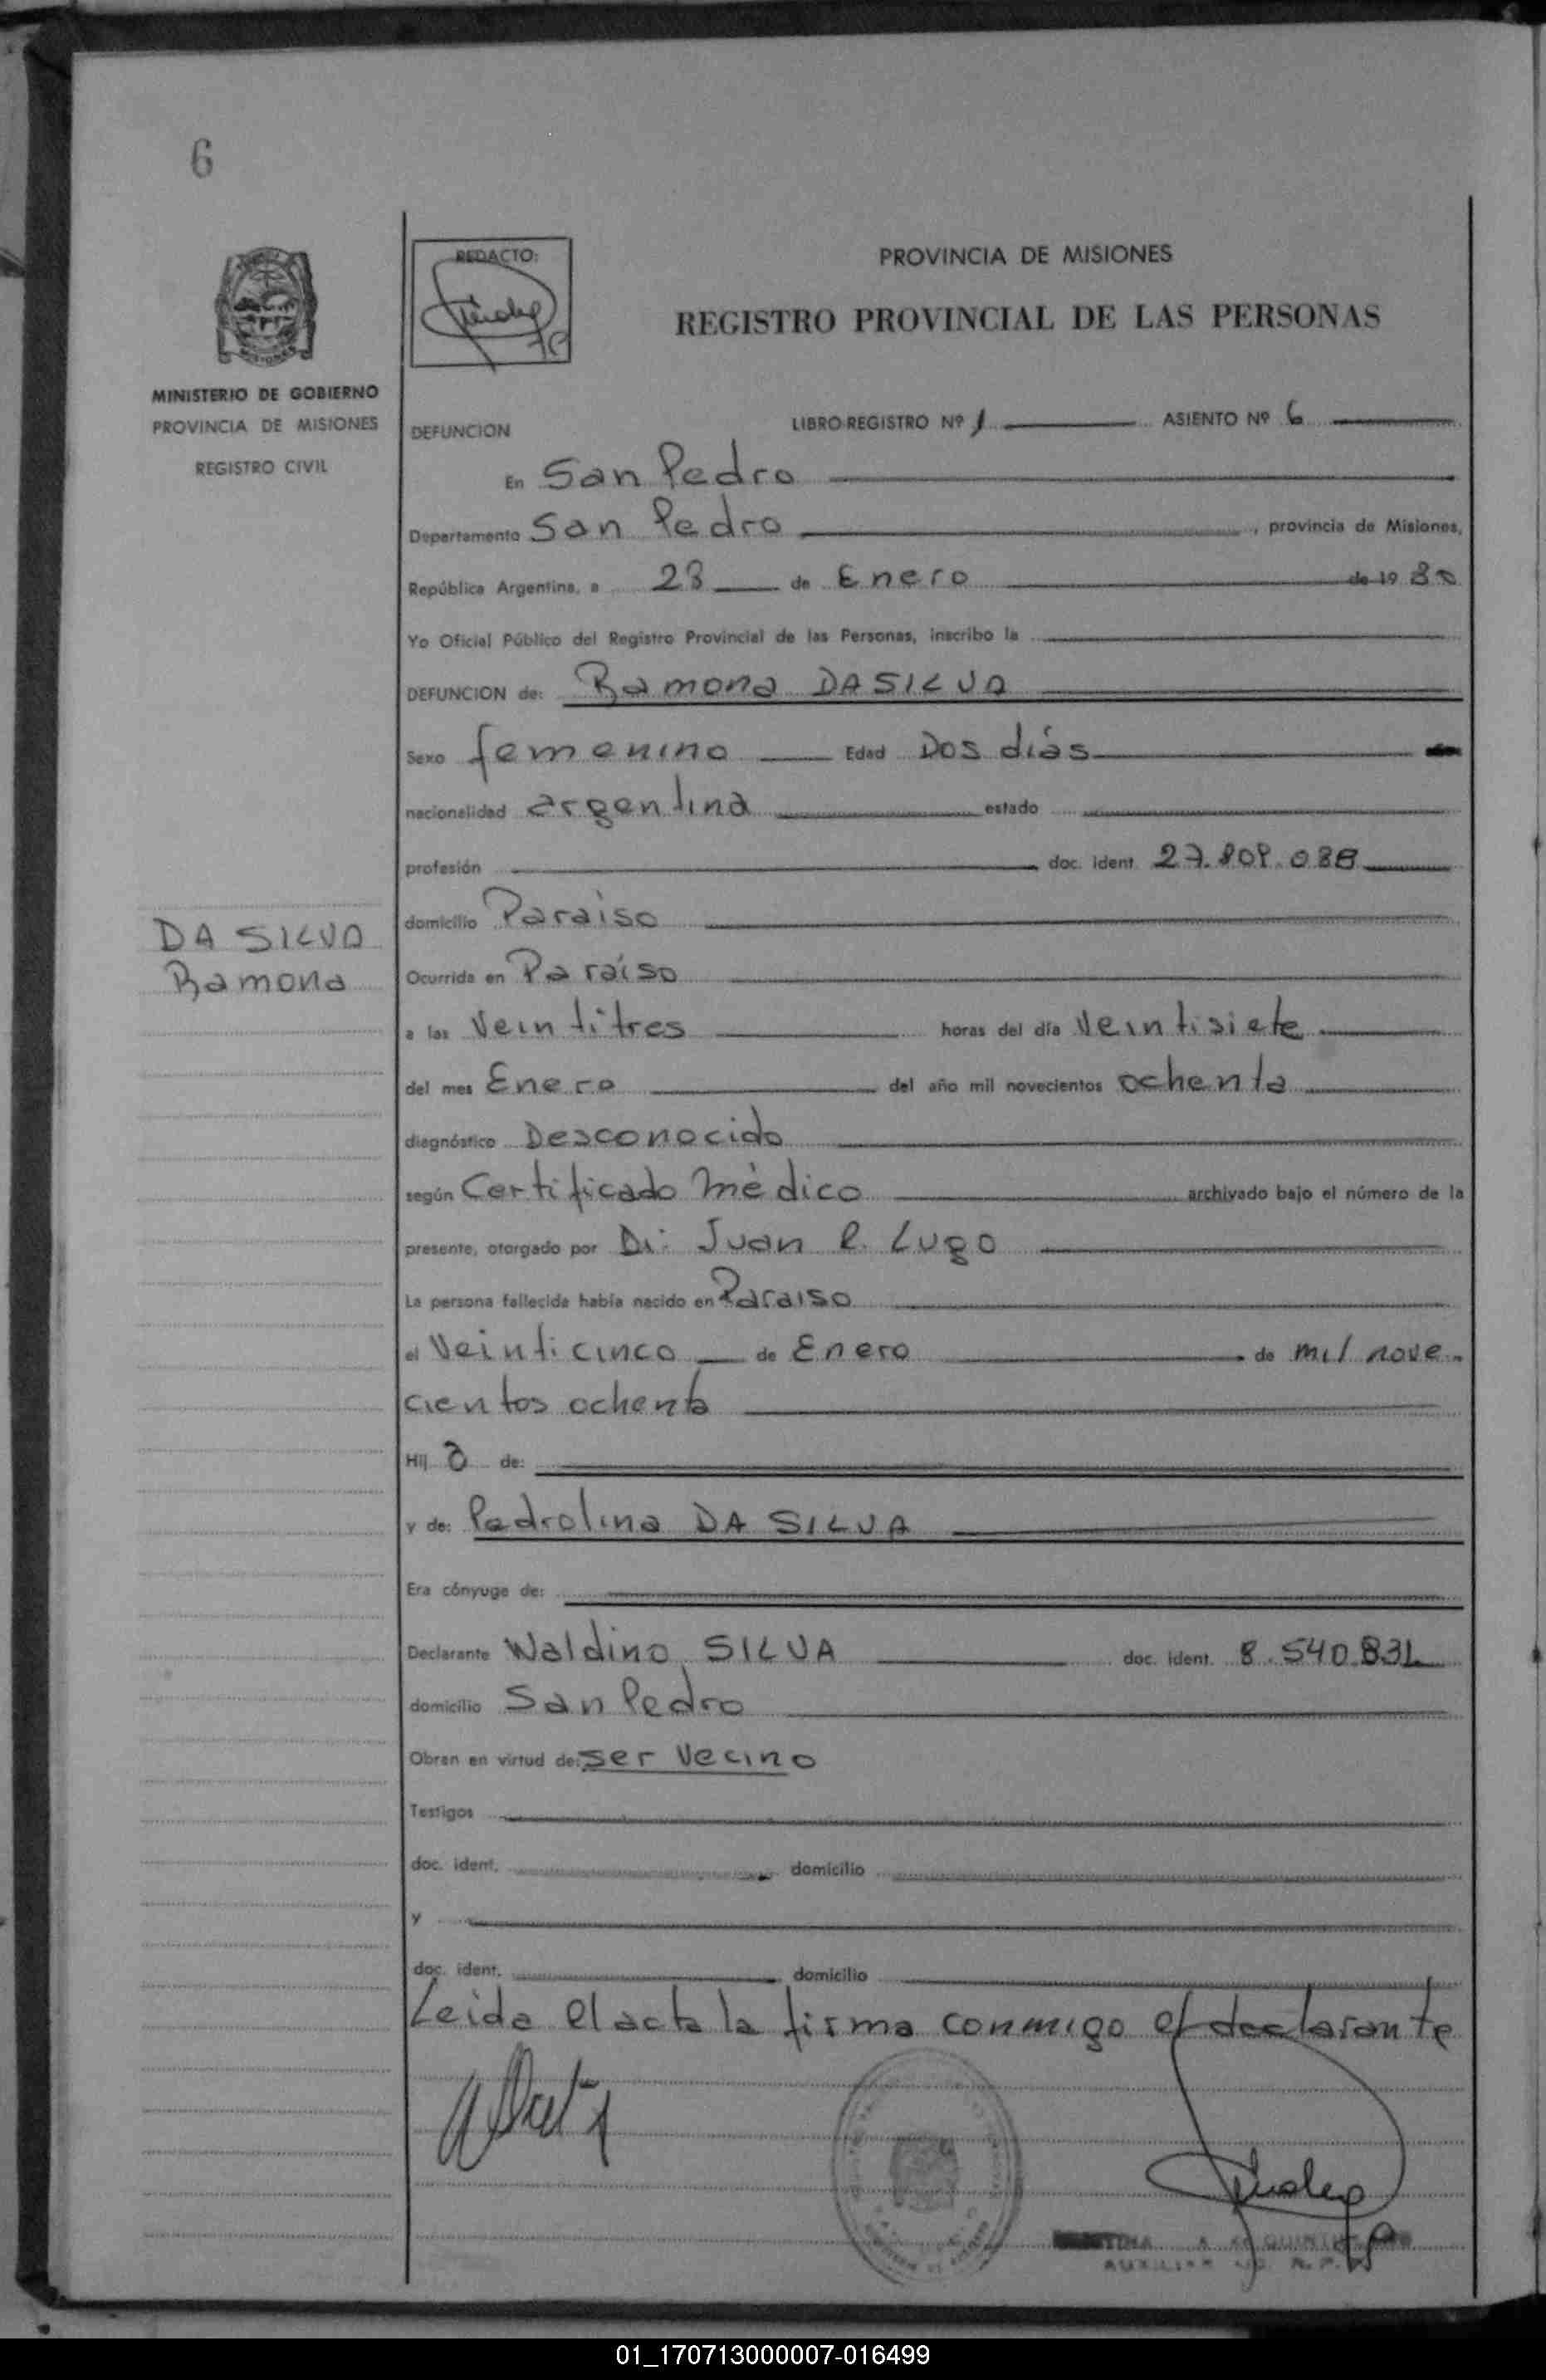 6
REDACTO:
PROVINCIA DE MISIONES
REGISTRO PROVINCIAL DE LAS PERSONAS
MINISTERIO DE GOBIERNO
PROVINCIA DE MISIONES
REGISTRO CIVIL
DEFUNCION LIBRO REGISTRO Nº 1 ASIENTO Nº 6
En San Pedro
Departamento San Pedro, provincia de Misiones,
República Argentina, a 28 de Enero de 1980
Yo Oficial Público del Registro Provincial de las Personas, inscribo la
DEFUNCION de: Ramona DA SILVA
Sexo femenino Edad Dos días
nacionalidad argentina estado
profesión doc. ident.
domicilio Paraiso
DA SILVA
Ramona
Ocurrida en Paraíso
a las Veintitres horas del día Veintisiete
del mes Enero del año mil novecientos ochenta
diagnóstico Desconocido
según Certificado médico archivado bajo el número de la
presente, otorgado por Dr. Juan R. Lugo
La persona fallecida había nacido en Paraiso
el Veinticinco de Enero de mil nove-
cientos ochenta
Hij a de:
y de: Pedrolina DA SILVA
Era cónyuge de:
Declarante Waldino SILVA doc. ident. 8.540.831
domicilio San Pedro
Obran en virtud de: ser Vecino
Testigos
doc. ident. domicilio
y
doc. ident. domicilio
Leida el acta la firma conmigo el declarante
01_170713000007-016499